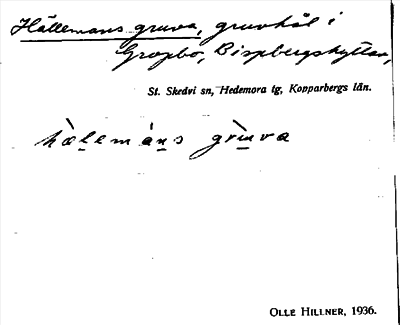 Hållemans gruva, gruvhål i
Gropbo, Bispbergshyttan,
St. Skedvi sn, Hedemora tg, Kopparbergs län.
hæ̀lemáns grùva
OLLE HILLNER, 1936.